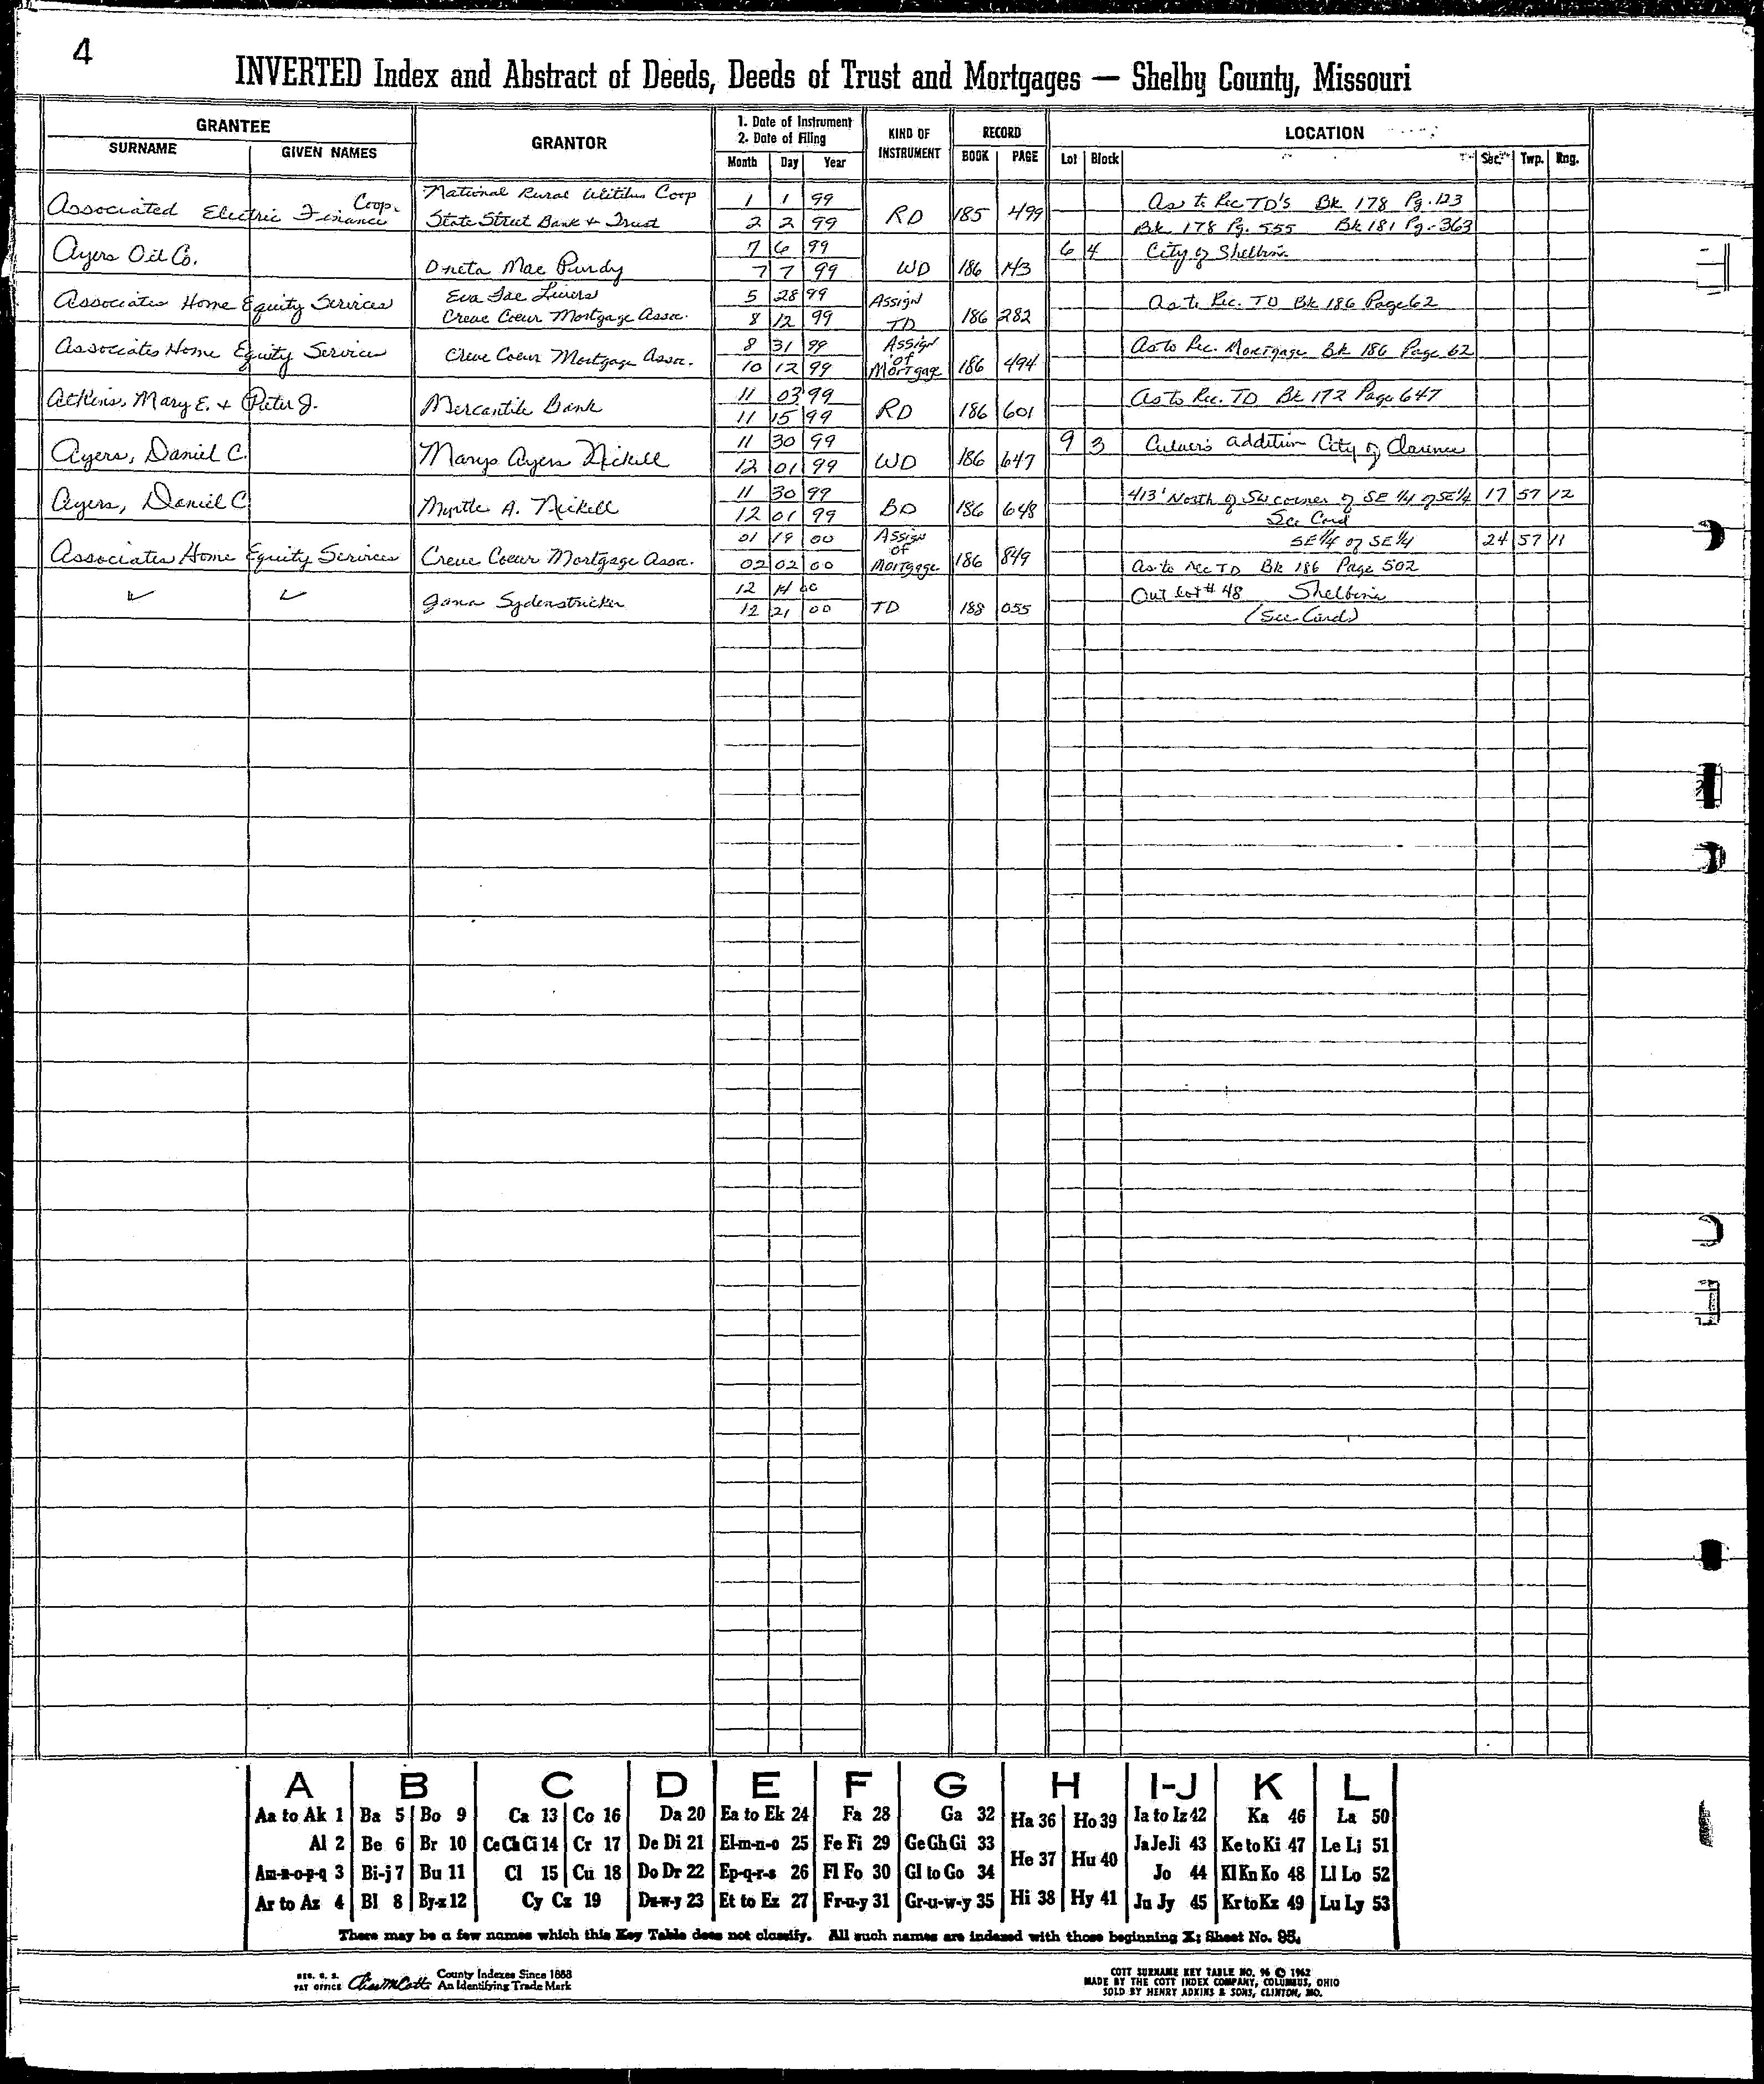 4
INVERTED Index and Abstract of Deeds, Deeds of Trust and Mortgages — Shelby County, Missouri
GRANTEE
SURNAME GIVEN NAMES
GRANTOR
1. Date of Instrument
2. Date of Filing
Month Day Year
KIND OF
INSTRUMENT
RECORD
BOOK PAGE
LOCATION
Lot Block Sec. Twp. Rng.
Associated Electric Finance Coop. National Rural Utilities Coop 1 1 99 As to Rec TD's Bk 178 Pg. 123
State Street Bank & Trust 2 2 99 RD 185 499 Bk 178 Pg. 555 Bk 181 Pg. 363
Ayers Oil Co. 7 6 99 6 4 City of Shelbina
Oneta Mae Purdy 7 7 99 WD 186 143
Associates Home Equity Services Eva Fae 5 28 99 Assign As to Rec. TD Bk 186 Page 62
Creve Coeur Mortgage Assoc. 8 12 99 TD 186 282
Associates Home Equity Services 8 31 99 Assign As to Rec. Mortgage Bk 186 Page 62
Creve Coeur Mortgage Assoc. 10 12 99 of Mortgage 186 494
Atkins, Mary E. & Peter J. 11 03 99 As to Rec. TD Bk 172 Page 647
Mercantile Bank 11 15 99 RD 186 601
Ayers, Daniel C. 11 30 99 9 3 Culver's addition City of Clarence
Marys Ayers Nickell 12 01 99 WD 186 647
Ayers, Daniel C 11 30 99 413' North of SW corner of SE 1/4 of SE 1/4 17 57 12
Myrtle A. Nickell 12 01 99 BD 186 648 See Card
01 19 00 Assign SE 1/4 of SE 1/4 24 57 11
Associates Home Equity Services Creve Coeur Mortgage Assoc. 02 02 00 of Mortgage 186 849 As to Rec TD Bk 186 Page 502
12 14 00 Out Lot # 48 Shelbina
Jana Sydenstricker 12 21 00 TD 188 055 (See Card)
A B C D E F G H I-J K L
Aa to Ak 1 Ba 5 Bo 9 Ca 13 Co 16 Da 20 Ea to Ek 24 Fa 28 Ga 32 Ha 36 Ho 39 Ia to Iz 42 Ka 46 La 50
Al 2 Be 6 Br 10 Ce Ch Ci 14 Cr 17 De Di 21 El-m-n-o 25 Fe Fi 29 Ge Gh Gi 33 He 37 Hu 40 Ja Je Ji 43 Ke to Ki 47 Le Li 51
Am-n-o-p-q 3 Bi-j 7 Bu 11 Cl 15 Cu 18 Do Dr 22 Ep-q-r-s 26 Fl Fo 30 Gl to Go 34 Jo 44 Kl Kn Ko 48 Ll Lo 52
Ar to Az 4 Bl 8 By-z 12 Cy Cz 19 Du-w-y 23 Et to Ez 27 Fr-u-y 31 Gr-u-w-y 35 Hi 38 Hy 41 Ju Jy 45 Kr to Kz 49 Lu Ly 53
There may be a few names which this Key Table does not classify. All such names are indexed with those beginning X; Sheet No. 95.
REG. U. S.
PAT OFFICE
County Indexes Since 1888
An Identifying Trade Mark
COTT SURNAME KEY TABLE NO. 96 © 1962
MADE BY THE COTT INDEX COMPANY, COLUMBUS, OHIO
SOLD BY HENRY ADKINS & SONS, CLINTON, MO.